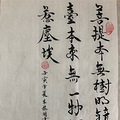 菩提本無樹明鏡
臺本來無一物
惹塵埃